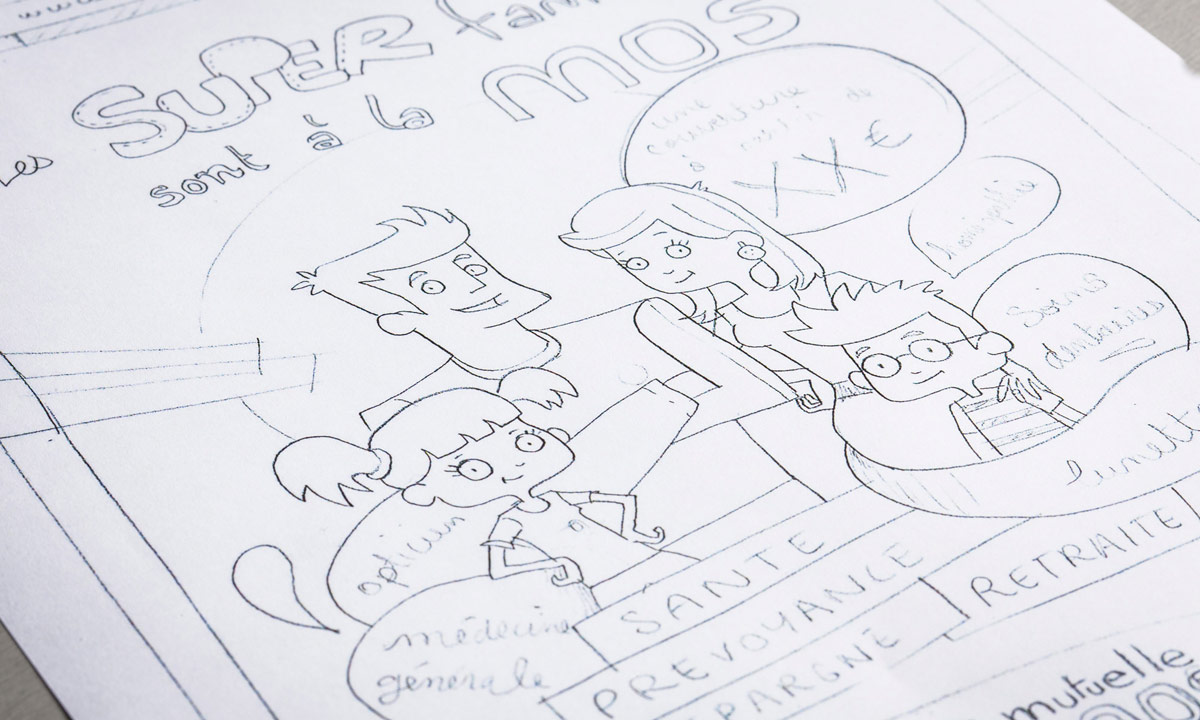 Les SUPER fam
sont à la MOS
une
couverture
à de
XX €
Soins
dentaires
lunett
opticien
médecine
générale
SANTE
PREVOYANCE
RETRAITE
PARGNE
mutuelle